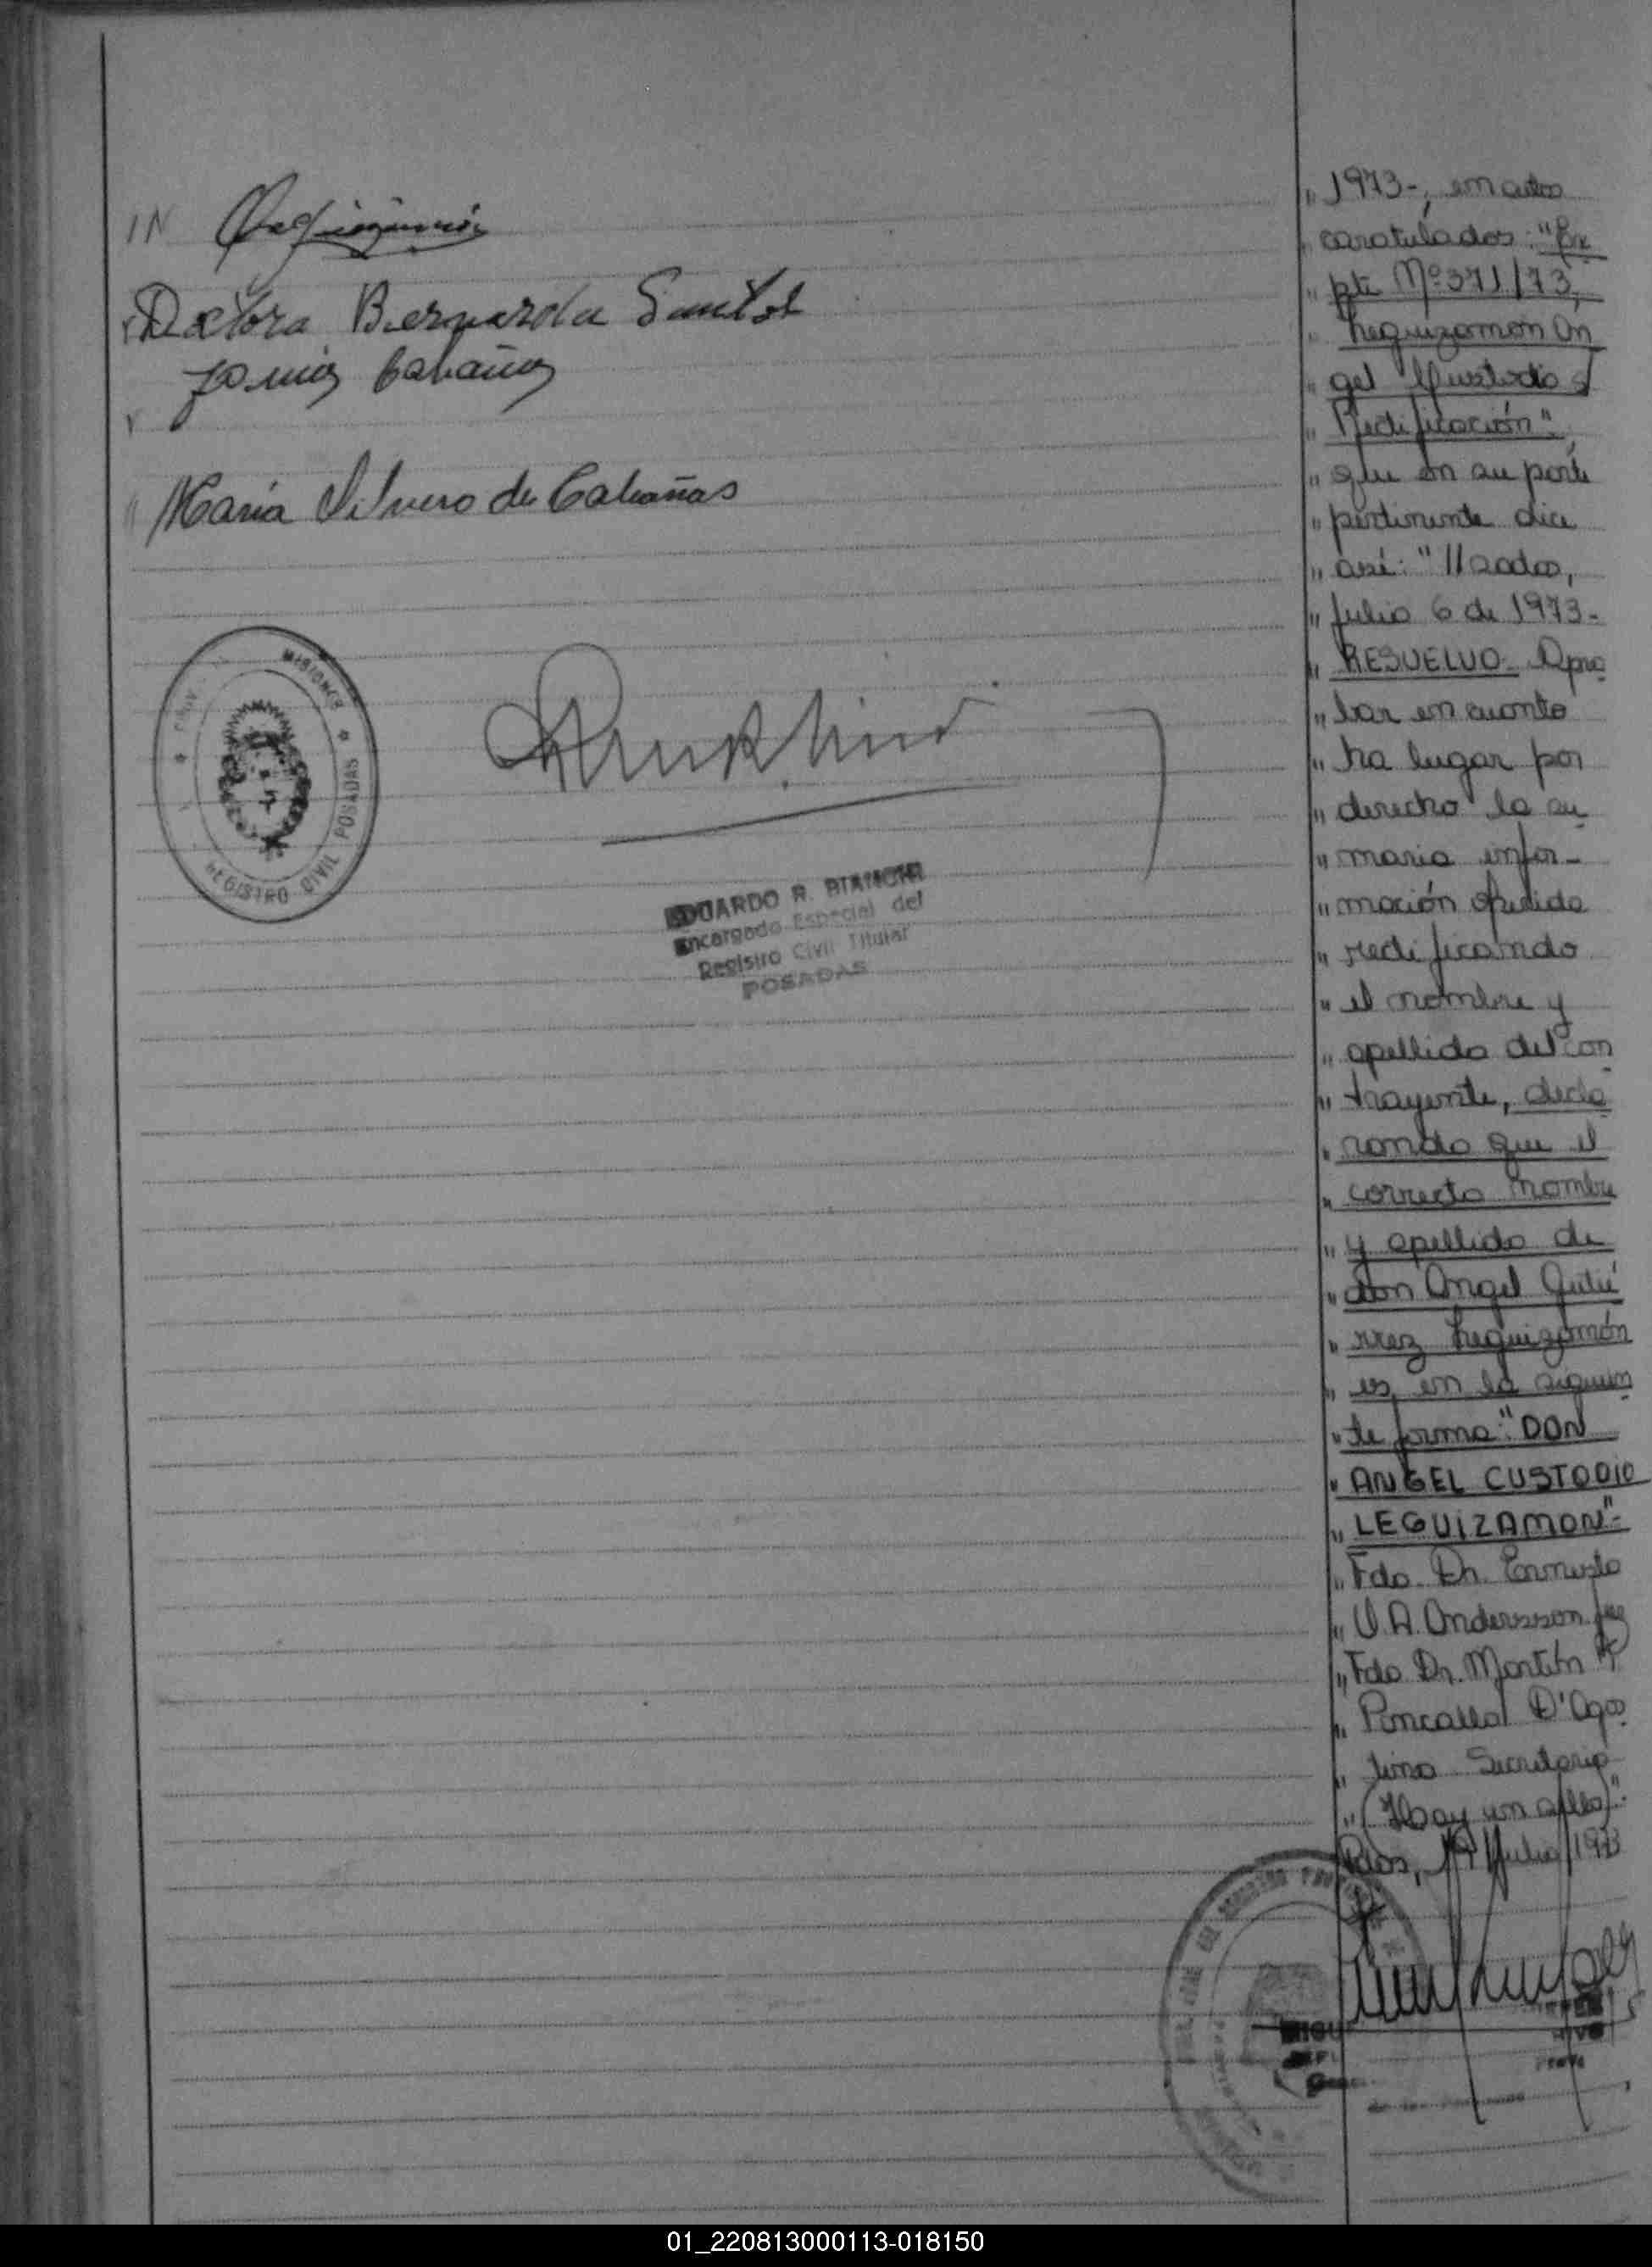 IN
Doctora Bernarda Santos
Cabañas
María Silvero de Cabañas
MISIONES
REGISTRO CIVIL POSADAS
EDUARDO R. BIANCHI
Encargado Especial del
Registro Civil Titular
POSADAS
" 1973-, en autos
" caratulados: "Ex
" pte Nº 371/73,
" Leguizamón An
" gel Custodio s/
" Rectificación",
" que en su parte
" pertinente dice
" así: "//sadas,
" Julio 6 de 1973-
" RESUELVO- Apro
" bar en cuanto
" ha lugar por
" derecho la su
" maria infor-
" mación ofrecida
" rectificando
" el nombre y
" apellido del con
" trayente, decla
" rando que el
" correcto nombre
" y apellido de
" don Angel Gutié
" rrez Leguizamón
" es en la siguien
" te forma: "DON
" ANGEL CUSTODIO
" LEGUIZAMON"-
" Fdo. Dr. Ernesto
" V.A. Andersson Juez
" Fdo Dr. Martín
" D'Agos
" tino Secretario
" (Hay un sello)".
Pdas, 19 Julio 1973
01_220813000113-018150